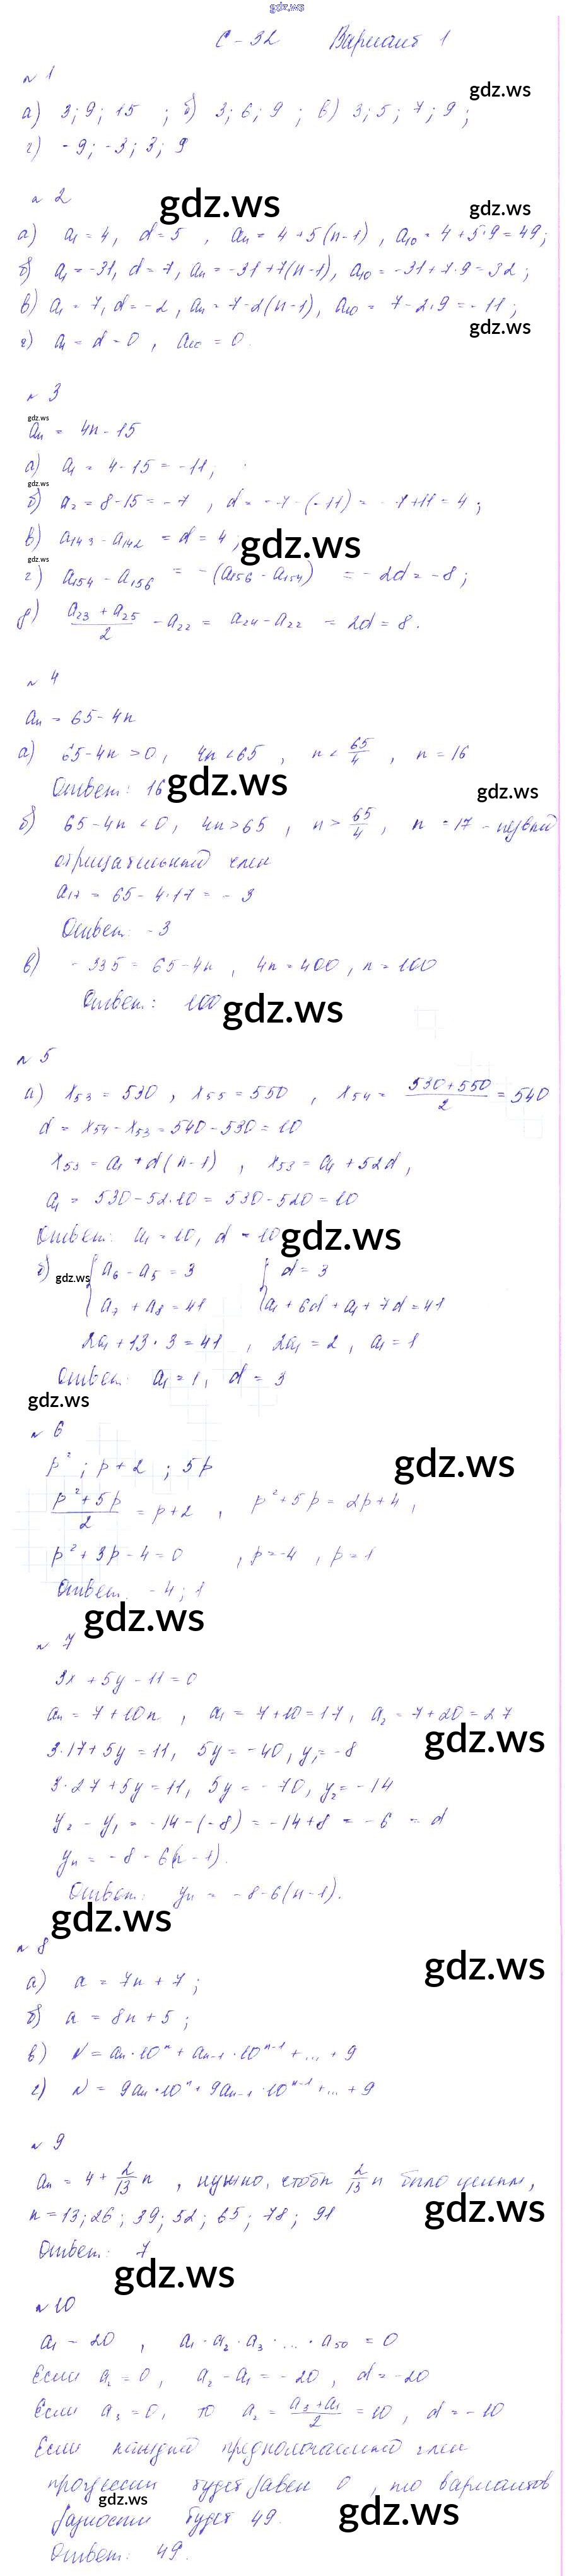 gdz.ws
С-32 Вариант 1
№ 1
gdz.ws
а) 3; 9; 15 ; б) 3; 6; 9 ; в) 3; 5; 7; 9;
г) -9; -3; 3; 9
№ 2
gdz.ws
gdz.ws
а) a₁ = 4, d = 5 , aₙ = 4+5(n-1) , a₁₀ = 4+5·9=49;
б) a₁ = -31, d = 7, aₙ = -31+7(n-1), a₁₀ = -31+7·9=32;
в) a₁ = 7, d = -2, aₙ = 7-2(n-1), a₁₀ = 7-2·9 = -11;
gdz.ws
г) a₁ = d = 0 , a₁₀ = 0.
№ 3
gdz.ws
aₙ = 4n-15
а) a₁ = 4-15 = -11;
gdz.ws
б) a₂ = 8-15 = -7 , d = -7-(-11) = -7+11 = 4;
в) a₁₄₃ - a₁₄₂ = d = 4;
gdz.ws
gdz.ws
г) a₁₅₄ - a₁₅₆ = -(a₁₅₆ - a₁₅₄) = -2d = -8;
д) (a₂₃ + a₂₅)/2 - a₂₂ = a₂₄ - a₂₂ = 2d = 8.
№ 4
aₙ = 65-4n
а) 65-4n > 0, 4n < 65 , n < 65/4 , n = 16
Ответ: 16
gdz.ws
gdz.ws
б) 65-4n < 0, 4n > 65 , n > 65/4 , n = 17 - первый
отрицательный член
a₁₇ = 65-4·17 = -3
Ответ: -3
в) -335 = 65-4n , 4n = 400 , n = 100
Ответ: 100
gdz.ws
№ 5
а) x₅₃ = 530 , x₅₅ = 550 , x₅₄ = (530+550)/2 = 540
d = x₅₄ - x₅₃ = 540-530 = 10
x₅₃ = a₁ + d(n-1) , x₅₃ = a₁ + 52d,
a₁ = 530-52·10 = 530-520 = 10
Ответ: a₁ = 10, d = 10
gdz.ws
б) { a₆ - a₅ = 3 { d = 3
gdz.ws
a₇ + a₈ = 41 a₁ + 6d + a₁ + 7d = 41
2a₁ + 13·3 = 41 , 2a₁ = 2 , a₁ = 1
Ответ: a₁ = 1, d = 3
gdz.ws
№ 6
p² ; p+2 ; 5p
gdz.ws
(p²+5p)/2 = p+2 , p²+5p = 2p+4,
p²+3p-4 = 0 , p = -4 , p = 1
Ответ: -4; 1
gdz.ws
№ 7
3x + 5y - 11 = 0
aₙ = 7+10n , a₁ = 7+10 = 17, a₂ = 7+20 = 27
gdz.ws
3·17+5y = 11, 5y = -40, y₁ = -8
3·27+5y = 11, 5y = -70, y₂ = -14
y₂ - y₁ = -14-(-8) = -14+8 = -6 = d
yₙ = -8-6(n-1).
Ответ: yₙ = -8-6(n-1).
gdz.ws
№ 8
gdz.ws
а) a = 7n+7;
б) a = 8n+5;
в) N = aₙ·10ⁿ + aₙ₋₁·10ⁿ⁻¹ + ... + 9
г) N = 9aₙ·10ⁿ + 9aₙ₋₁·10ⁿ⁻¹ + ... + 9
№ 9
aₙ = 4 + 2/13 n , нужно, чтобы 2/13 n было целым,
gdz.ws
n = 13; 26; 39; 52; 65; 78; 91
Ответ: 7
gdz.ws
№ 10
a₁ = 20 , a₁·a₂·a₃·...·a₅₀ = 0
Если a₂ = 0, a₂ - a₁ = -20 , d = -20
Если a₃ = 0, то a₂ = (a₃+a₁)/2 = 10, d = -10
Если каждый член
прогрессии будет равен 0, то вариантов
gdz.ws
gdz.ws
разности будет 49.
Ответ: 49.